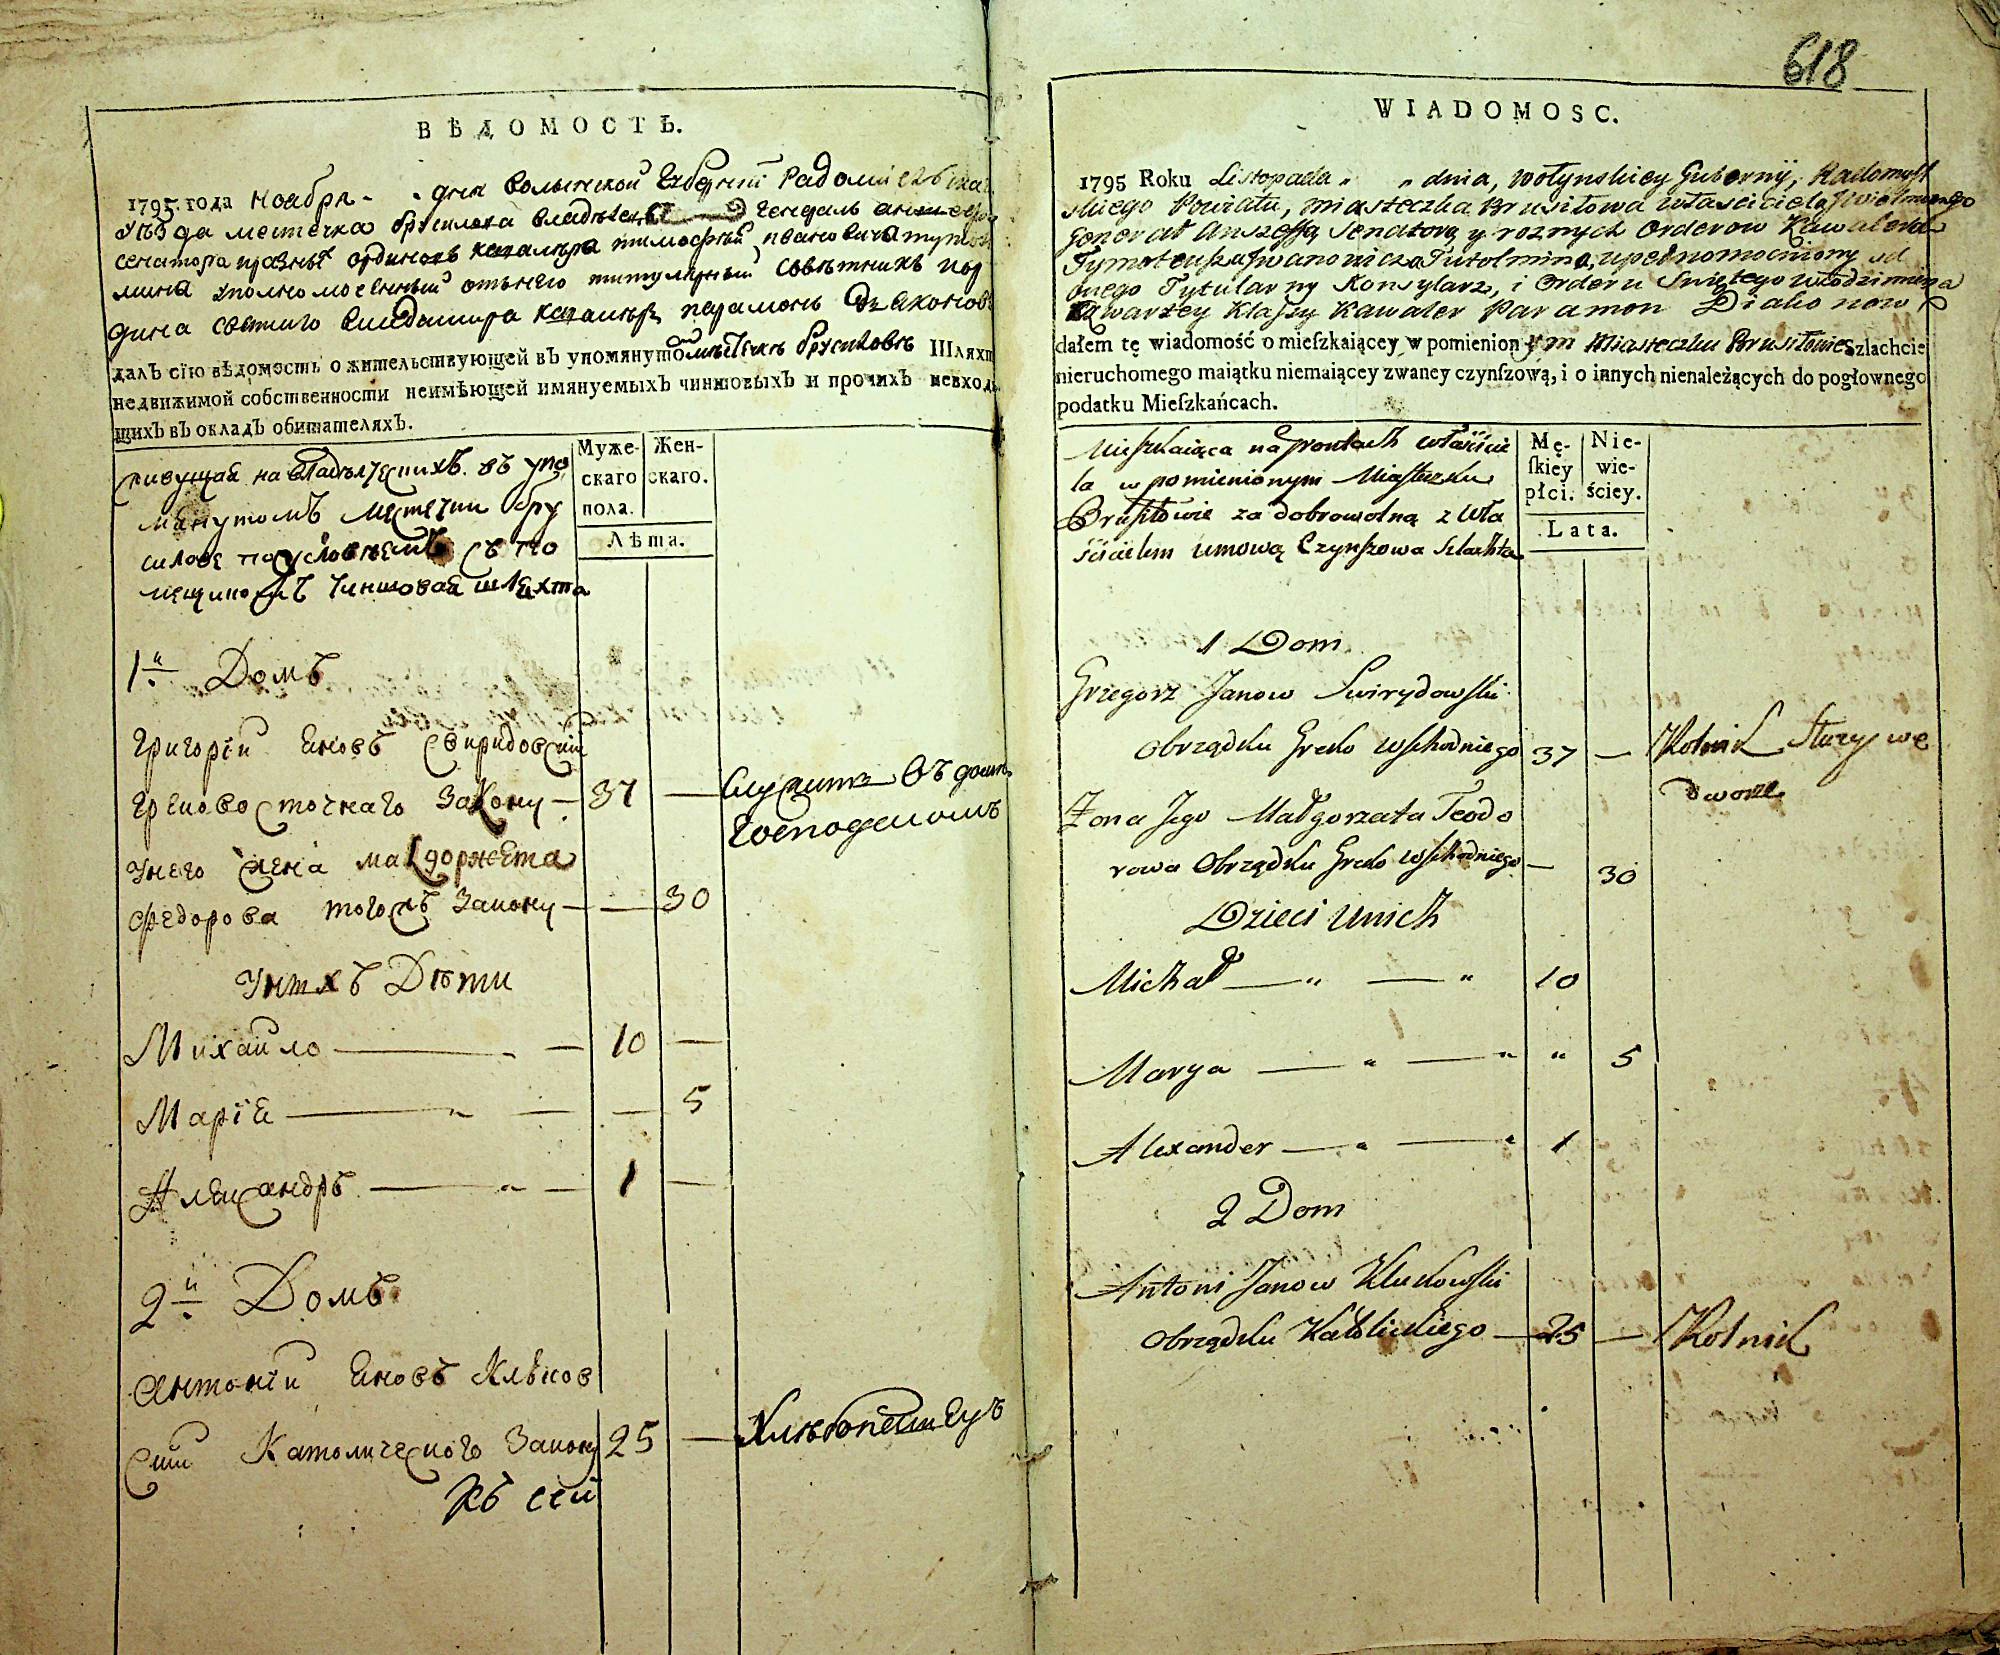 ВѢДОМОСТЬ.
1795 года Ноября дня Волынской Губернии Радомысльска
уѣзда местечка Брусилова владѣтеля Генераль аншефа
сенатора разныхъ ординовъ кавалѣра тимофѣй ивановича тутол
мина уполномоченный отънего титулярный совѣтникъ и ор
дина святого владимира кавалѣръ парамонъ Дьяконовъ
далъ сїю вѣдомость о жительствующей въ упомянутомъ местечкѣ брусиловѣ Шляхт
недвижимой собственности неимѣющей имянуемыхъ чиншовыхъ и прочихъ невход
щихъ въ окладъ обитателяхъ.
Муже-
скаго
пола.
Жен-
скаго.
Лѣта.
живущая на владѣлческихъ въ упо
мянутомъ местечки бру
силове поусловиемъ съ по
мещикомъ чиншовая шляхта
1й Домъ
Григорїй Яновъ Свиридовский
Грековосточнаго Закону — 37 — служитъ въ домѣ
Господскомъ
Унего жена малгоржета
Федорова тогожъ Закону — — 30
Унихъ Дѣти
Михайло — 10 —
Марїя — — 5
Александръ — 1 —
2й Домъ
Антонїй Яновъ Клѣков
ский Католического Закону 25 — Хлѣбопашецъ
къ сей
618
WIADOMOSC.
1795 Roku Listopada " " dnia, Wołynskiey Guberny, Radomysl
skiego Powiatu, miasteczka Brusiłowa właściciela JWielmożnego
General Anszeffa Senatora y roznych Orderow Kawalera
Tymoteusza Jwanowicza Tutolmina, upełnomocniony od
onego Tytularny Konsylarz, i Orderu Swiętego Włodzimierza
Czwartey Klassy Kawaler Paramon Diakonow
dałem tę wiadomość o mieſzkaiącey w pomienionym Miasteczku Brusiłowie szlachcie
nieruchomego maiątku niemaiącey zwaney czynſzową, i o innych nienależących do pogłownego
podatku Mieſzkańcach.
Mę-
ſkiey
płci.
Nie-
wie-
ściey.
Lata.
Mieszkaiąca na grontach właście
la w pomienionym Miasteczku
Brusiłowie za dobrowolną z wła
ścicielem umową Czynszowa Szlachta
1 Dom
Grzegorz Janow Swirydowski
Obrządku Greko Wschodniego 37 — Rolnik służy we
dworze
Żona Jego Małgorzata Teodo
rowa Obrządku Greko Wschodniego — 30
Dzieci Unich
Michał — " — " 10
Marya — " — " " 5
Alexander — " — " 1
2 Dom
Antoni Janow Klukowski
Obrządku Katolickiego — 25 — Rolnik